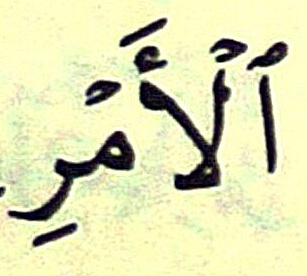 ٱلْأَمْرِ